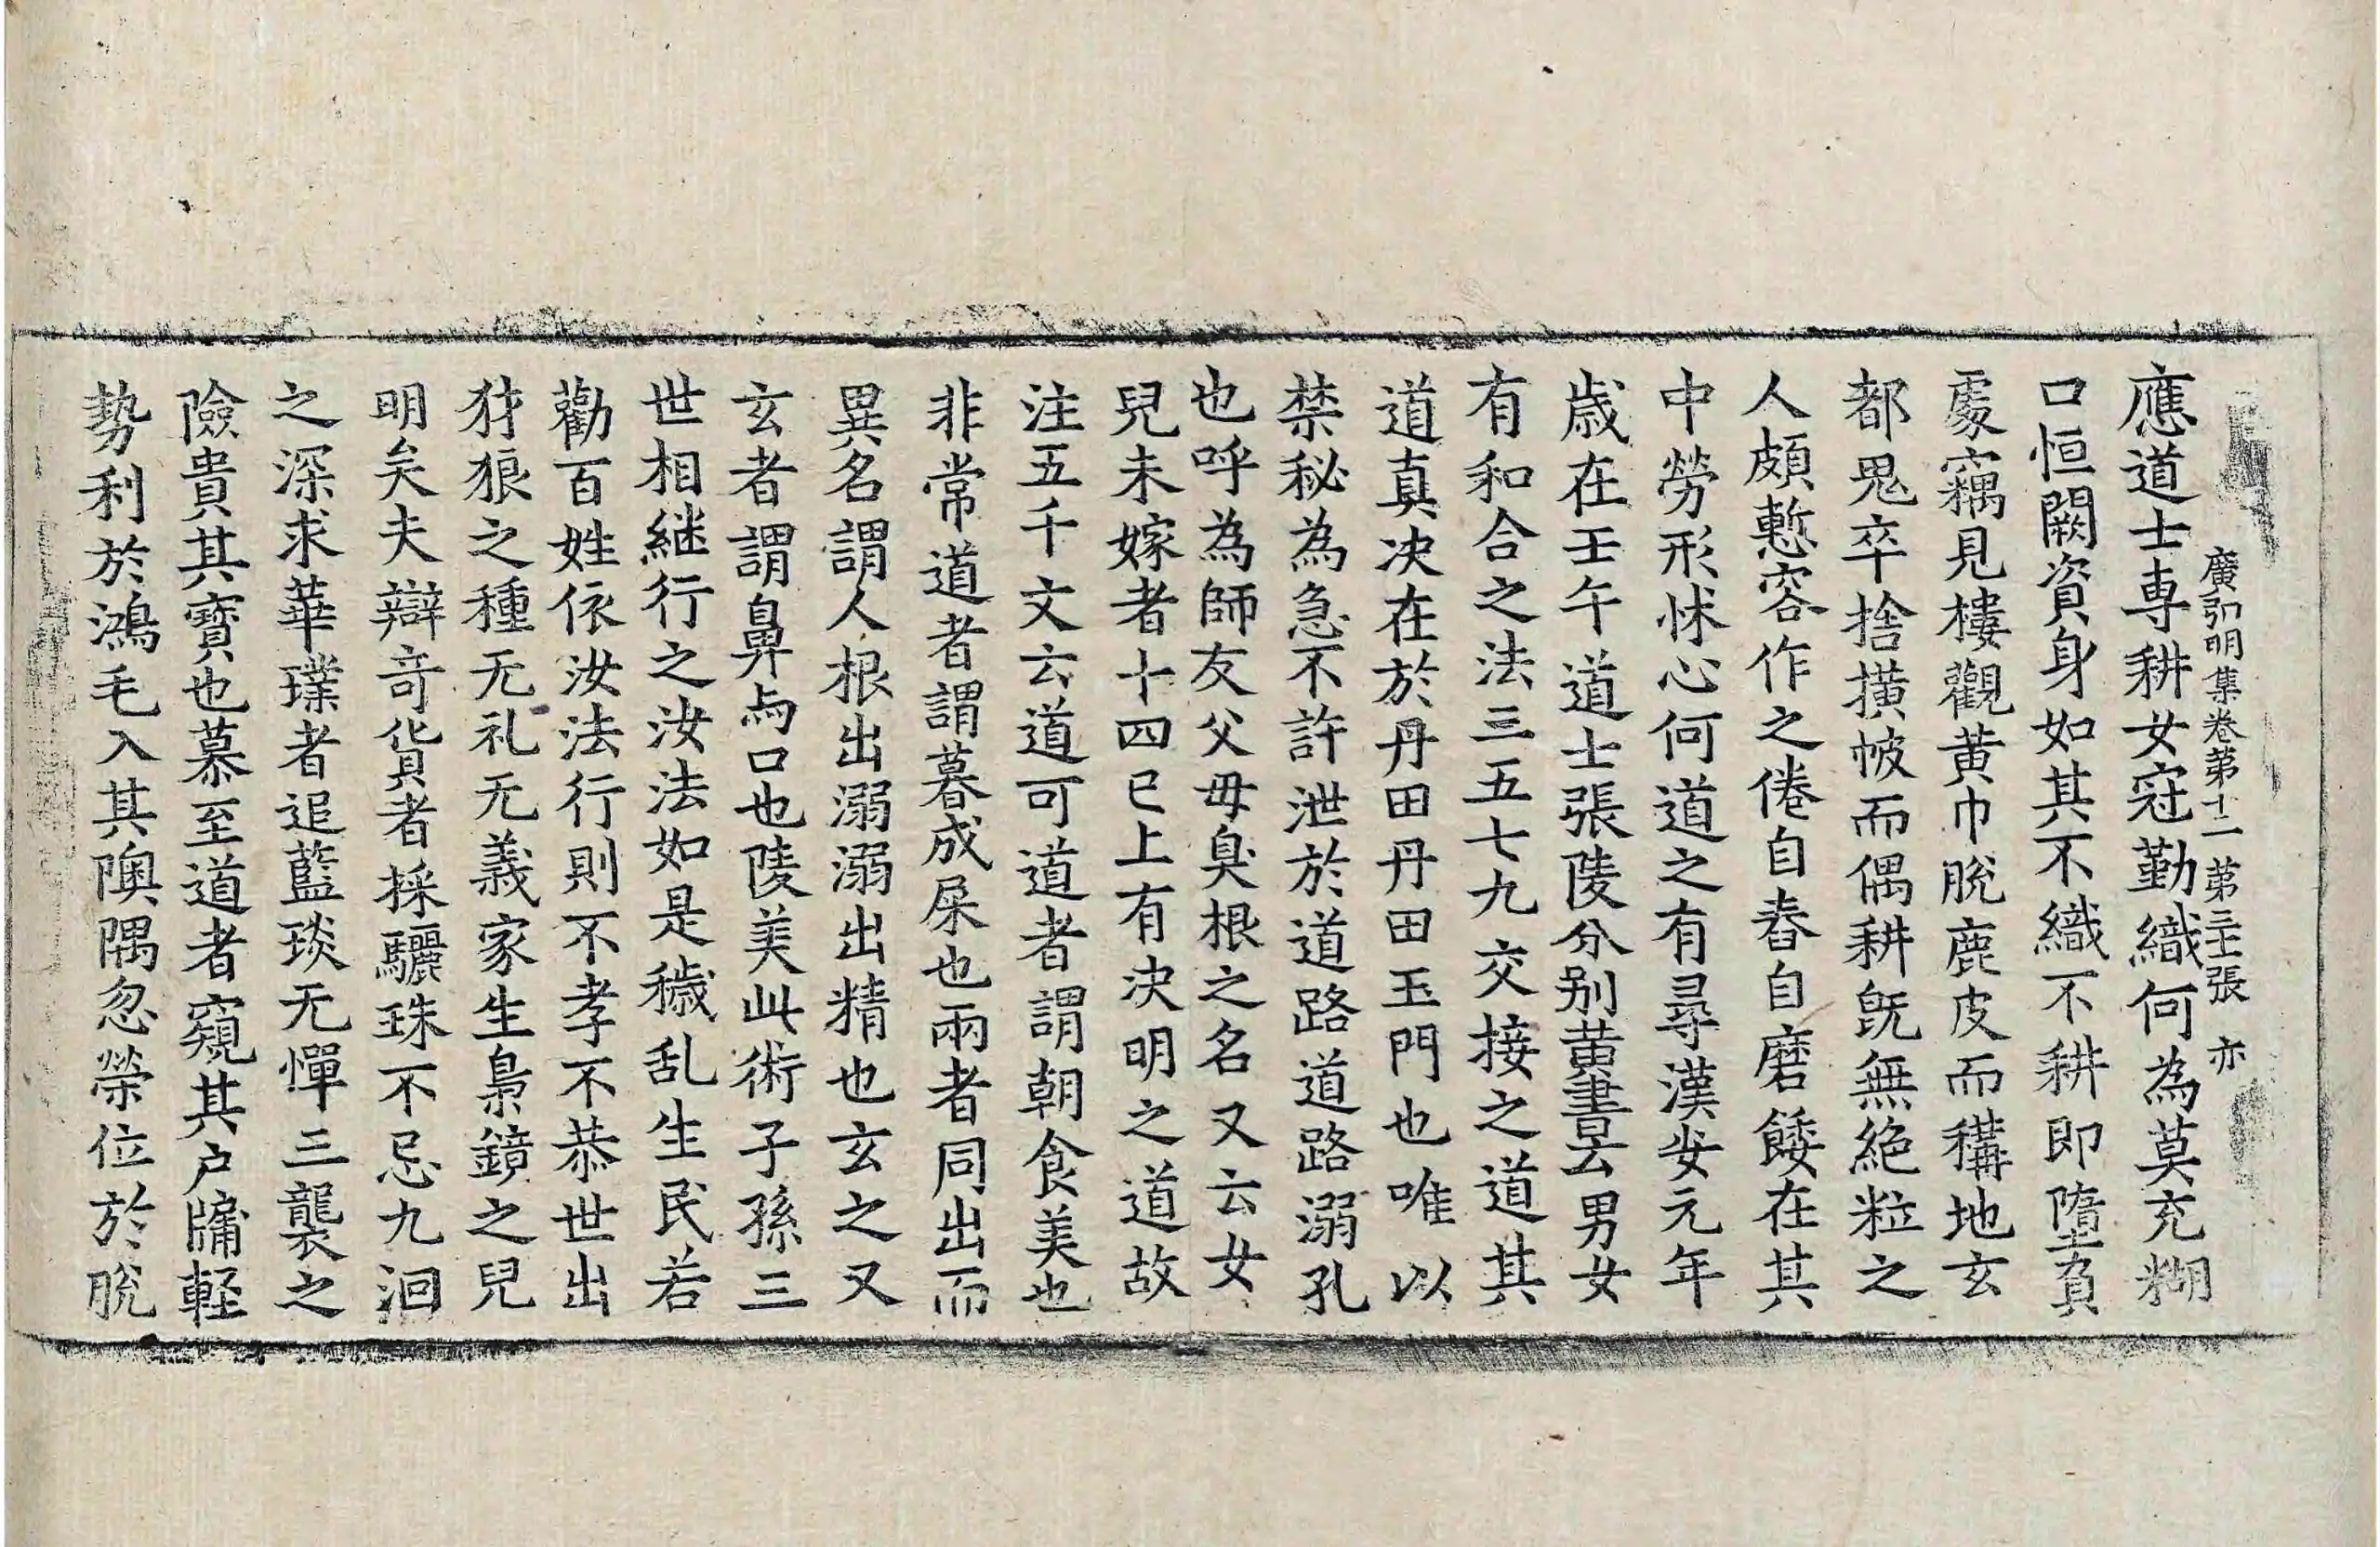 廣弘明集卷第十二 第三十二張 亦
應道士專耕女冠勤織何為莫充糊
口恒闕資身如其不織不耕即墮負
處竊見樓觀黃巾脫鹿皮而耩地玄
都鬼卒捨橫帔而偶耕旣無絕粒之
人頗慙容作之倦自舂自磨餧在其
中勞形怵心何道之有尋漢安元年
歲在壬午道士張陵分別黃書云男女
有和合之法三五七九交接之道其
道真決在於丹田丹田玉門也唯以
禁秘為急不許泄於道路道路溺孔
也呼為師友父母臭根之名又云女
兒未嫁者十四已上有決明之道故
注五千文云道可道者謂朝食美也
非常道者謂暮成屎也兩者同出而
異名謂人根出溺溺出精也玄之又
玄者謂鼻與口也陵美此術子孫三
世相継行之汝法如是穢乱生民若
勸百姓依汝法行則不孝不恭世出
豺狼之種无礼无義家生梟鏡之兒
明矣夫辯竒貨者採驪珠不忌九洄
之深求華璞者追藍琰无憚三襲之
險貴其寶也慕至道者窺其户牖輕
勢利於鴻毛入其隩隅忽榮位於脫